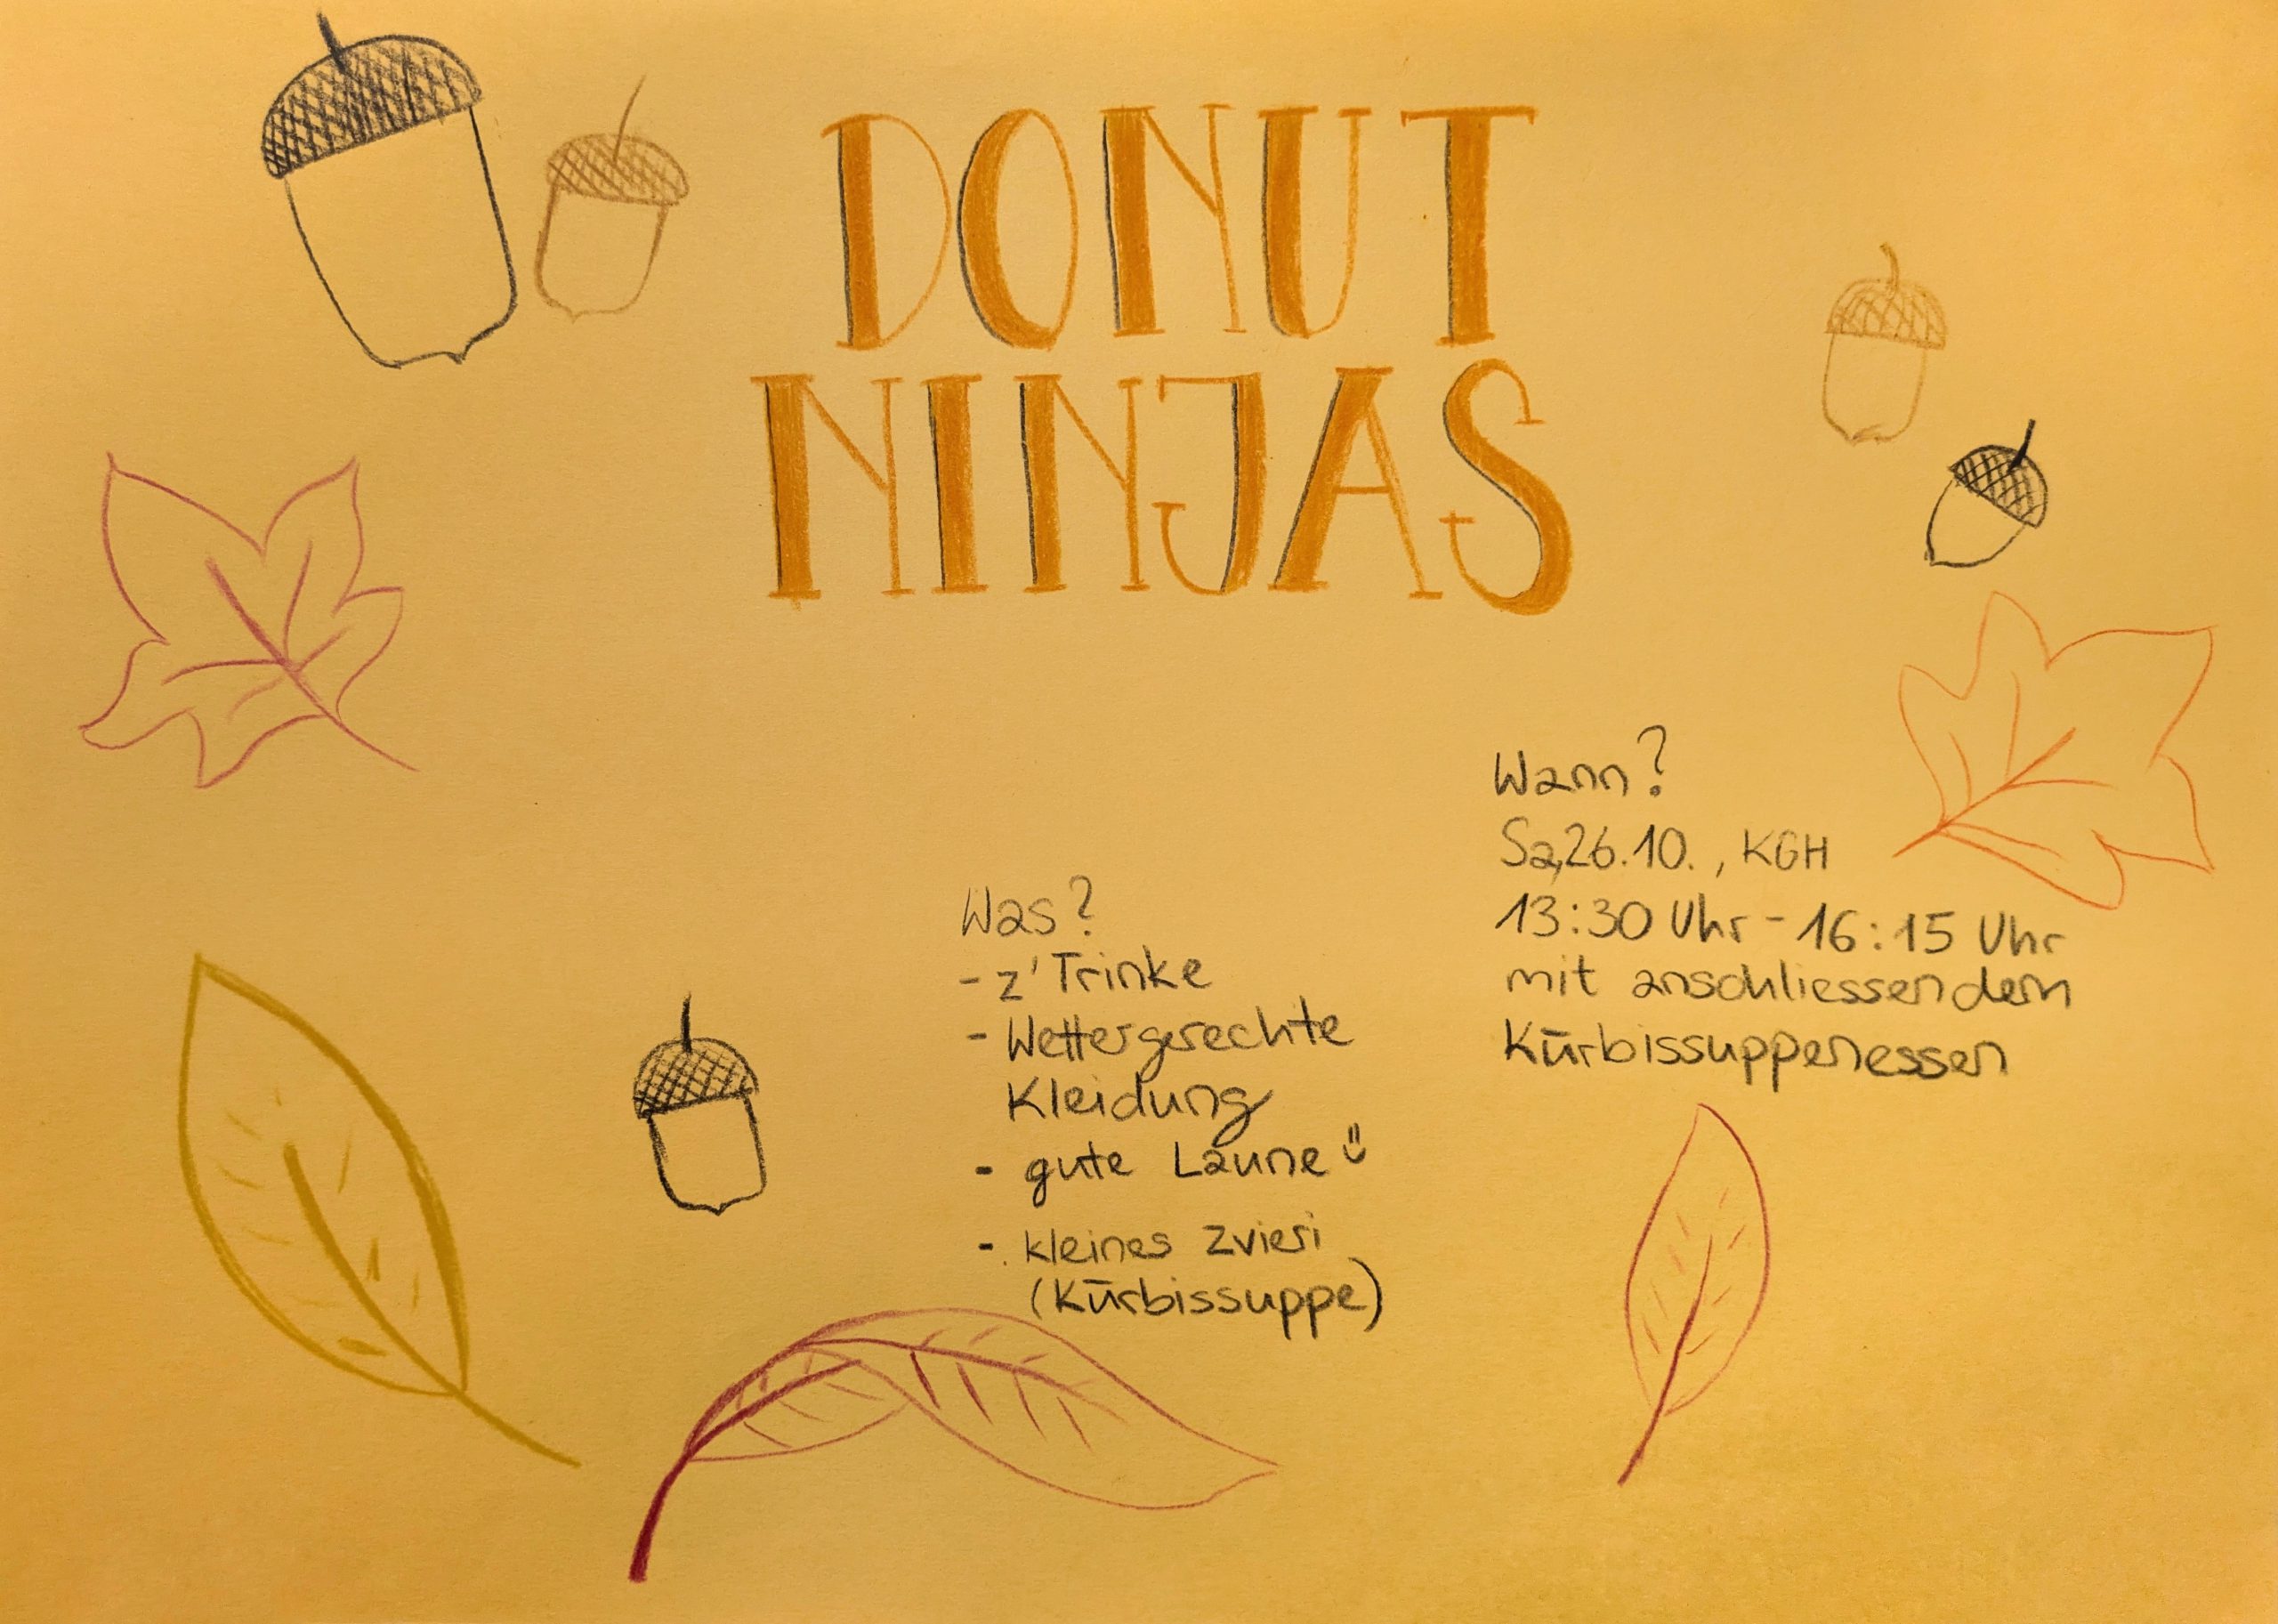 DONUT
NINJAS
Wann?
Sa, 26.10., KGH
13:30 Uhr - 16:15 Uhr
mit anschliessendem
Kürbissuppenessen
Was?
- z'Trinke
- Wettergerechte
Kleidung
- gute Laune
- kleines Zvieri
(Kürbissuppe)